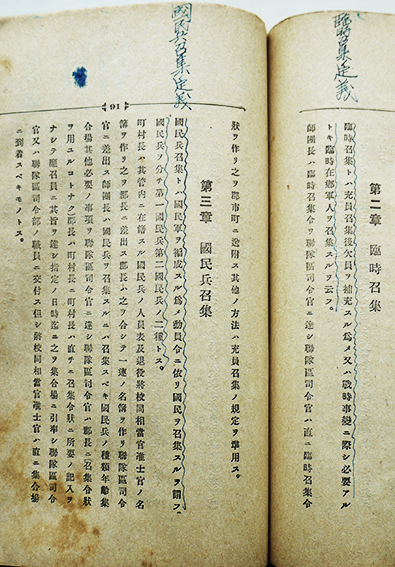 臨時召集定義
第二章 臨時召集
臨時召集トハ充員召集後欠員ヲ補充スル爲メ又ハ戰時事變ニ際シ必要アル
トキ臨時在鄕軍人ヲ召集スルヲ云フ。
師團長ハ臨時召集令ヲ聯隊區司令官ニ達シ聯隊區司令官ハ直ニ臨時召集令
國民兵召集定義
91
狀ヲ作リ之ヲ郡市町ニ送附ス其他ノ方法ハ充員召集ノ規定ヲ準用ス。
第三章 國民兵召集
國民兵召集トハ國民軍ヲ編成スル爲メ動員令ニ依リ國民ヲ召集スルヲ謂フ
國民兵ヲ分チ第一國民兵第二國民兵ノ二種トス。
町村長ハ其管內ニ在籍スル國民兵ノ人員表及退役將校同相當官准士官ノ名
簿ヲ作リ之ヲ郡長ニ差出ス郡長ハ之ヲ合シテ一連ノ名簿ヲ作リ聯隊區司令
官ニ差出ス師團長 召集スルニハ召集スベキ國民兵ノ種類年齡集
合場其他必要ノ事項ヲ聯隊區司令官ニ達シ聯隊區司令官ハ郡長ニ(召集令狀
ヲ用ユルコトナク)郡長ハ町村長ニ町村長ハ直チニ召集令狀ニ所要ノ記入ヲ
ナシテ應召員ニ其旨ヲ達シ指定ノ日時迄ニ之ヲ集合場ニ引率シ聯隊區司令
官又ハ聯隊區司令部ノ職員ニ交付ス但シ將校同相當官准士官ハ直ニ集合場
ニ到着スベキモノトス。